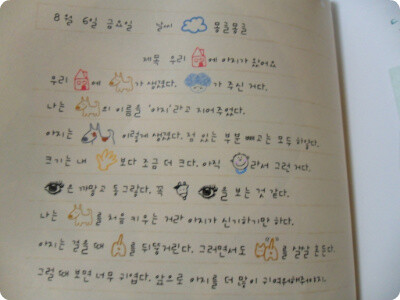 8월 6일 금요일 날씨 뭉글뭉글
제목 우리 에 아지가 왔어요
우리 에 가 생겼다. 가 주신 거다.
나는 의 이름을 '아지'라고 지어주었다.
아지는 이렇게 생겼다. 점 있는 부분 빼고는 모두 하얗다.
크기는 내 보다 조금 더 크다. 아직 라서 그런 거다.
은 까맣고 동그랗다. 꼭 를 보는 것 같다.
나는 를 처음 키우는 거라 아지가 신기하기만 하다.
아지는 걸을 때 를 뒤뚱거린다. 그러면서도 를 살살 흔든다.
그럴 때 보면 너무 귀엽다. 앞으로 아지를 더 많이 귀여워해주어야지.